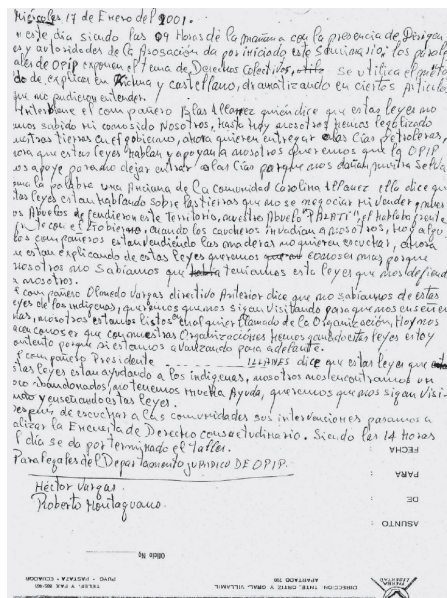 Miércoles 17 de Enero del 2001.
"este día siendo las 09 Horas de la mañana con la presencia de Dirigen
es y autoridades de la Asosación da por iniciado este Seminario, los parale
ales de OPIP exponen el tema de Derechos Colectivos, se utiliza el meto
do de explicar en Kichua y castellano, dramatizando en ciertos Articulo
que no pudieron entender.
Interviene el compañero Blas Illanez quién dice que estas leyes no
mos sabido ni conosido Nosotros, Hasta hoy nosotros hemos legalizado
nuestras tierras en el gobierno, ahora quieren entregar a las Cías petroleras,
ora que estas leyes Hablan y apoyan a nosotros queremos que la OPIP
os apoye para no dejar entrar a las Cías porque nos dañan nuestra Selva
oma la palabra una Anciana de la Comunidad Carolina Illanez ella dice qu
tas leyes estan hablando sobre las tierras que no se negociar ni vender, nues
os Abuelos defendieron este Territorio, nuestro Abuelo "PALATI" el hablo frente
frente con el Gobierno, cuando los caucheros invadian a nosotros, Hoy algu
los compañeros estan vendiendo las maderas no quieren escuchar, ahora
e estan explicando de estas leyes queremos conocer mas porque
nosotros no Sabiamos que teniamos esta leyes que nos defiend
a nosotros.
El compañero Olmedo Vargas directivo Anterior dice que no sabiamos de estas
eyes de los indigenas, queremos que nos sigan Visitando para que nos enseñen
mas, nosotros estamos listos en cualquier llamado de la Organización, Hoy nos
acen conoser que con nuestras Organizaciones Hemos ganado estas leyes estoy
ontento porque si estamos avanzando para adelante.
El compañero Presidente ILLANES dice que estas leyes que
stas leyes estan ayudando a los indigenas, nosotros nos encontramos un
oco abandonados, no tenemos mucha Ayuda, queremos que nos sigan Visi
ando y enseñando estas leyes.
espués de escuchar a las comunidades sus intervenciones pasamos a
alizar la Encuesta de Derecho consuetudinario. Siendo las 14 Horas
l día se da por terminado el Taller.
FECHA :
Paralegales del Departamento JURIDICO DE OPIP.
PARA :
Héctor Vargas.
DE :
Roberto Montaguano.
ASUNTO :
Oficio No
DIRECCION: TNTE. ORTIZ Y GRAL. VILLAMIL
APARTADO 790
PUYO - PASTAZA - ECUADOR